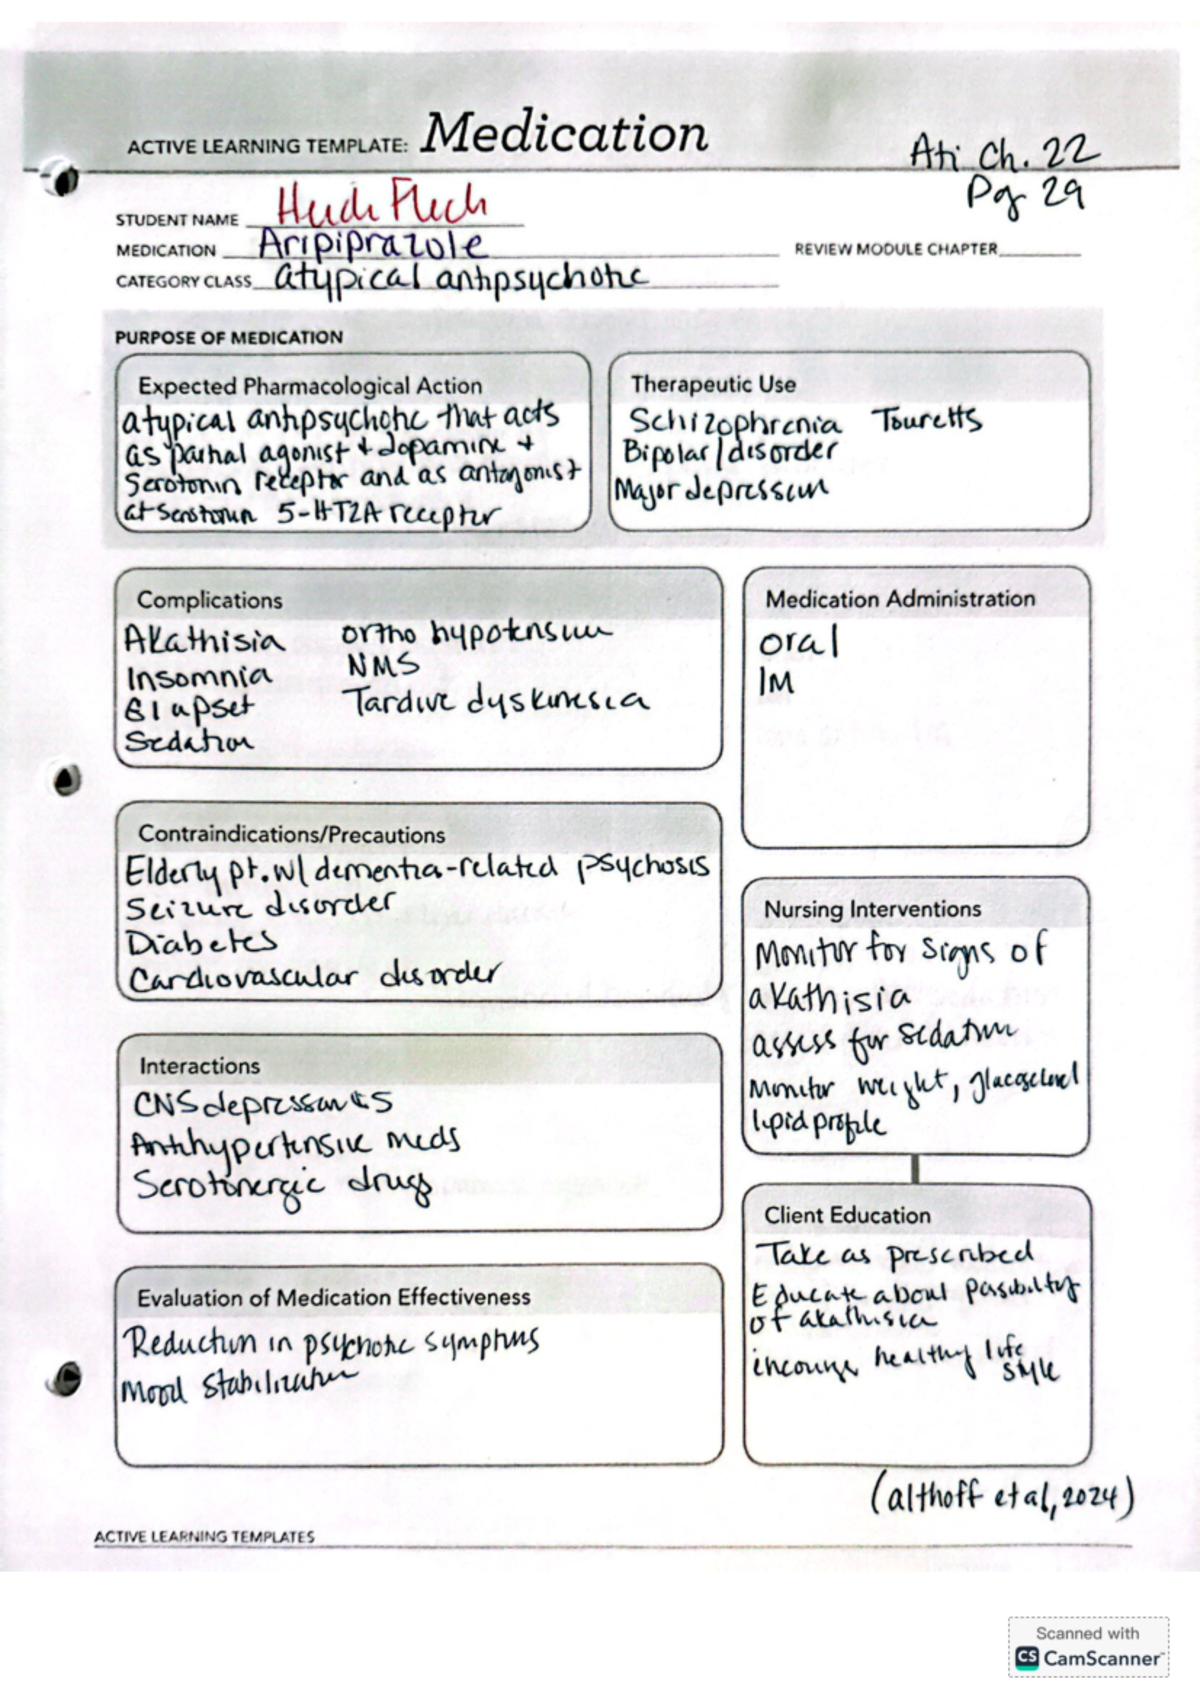 ACTIVE LEARNING TEMPLATE: Medication
Ati Ch. 22
Pg 29
STUDENT NAME Heidi Flech
MEDICATION Aripiprazole
REVIEW MODULE CHAPTER
CATEGORY CLASS atypical antipsychotic
PURPOSE OF MEDICATION
Expected Pharmacological Action
atypical antipsychotic that acts
as partial agonist + dopamine +
Serotonin receptor and as antagonist
at serotonin 5-HT2A receptor
Therapeutic Use
Schizophrenia Touretts
Bipolar/disorder
Major depression
Complications
Akathisia ortho hypotension
Insomnia NMS
GI upset Tardive dyskinesia
Sedation
Medication Administration
oral
IM
Contraindications/Precautions
Elderly pt. w/ dementia-related psychosis
Seizure disorder
Diabetes
Cardiovascular disorder
Nursing Interventions
Monitor for signs of
akathisia
assess for sedation
Monitor weight, glucose level
lipid profile
Interactions
CNS depressants
Antihypertensive meds
Serotonergic drugs
Client Education
Take as prescribed
Educate about possibility
of akathisia
incourage healthy life
style
Evaluation of Medication Effectiveness
Reduction in psychotic symptoms
Mood stabilization
(althoff et al, 2024)
ACTIVE LEARNING TEMPLATES
Scanned with
CS CamScanner